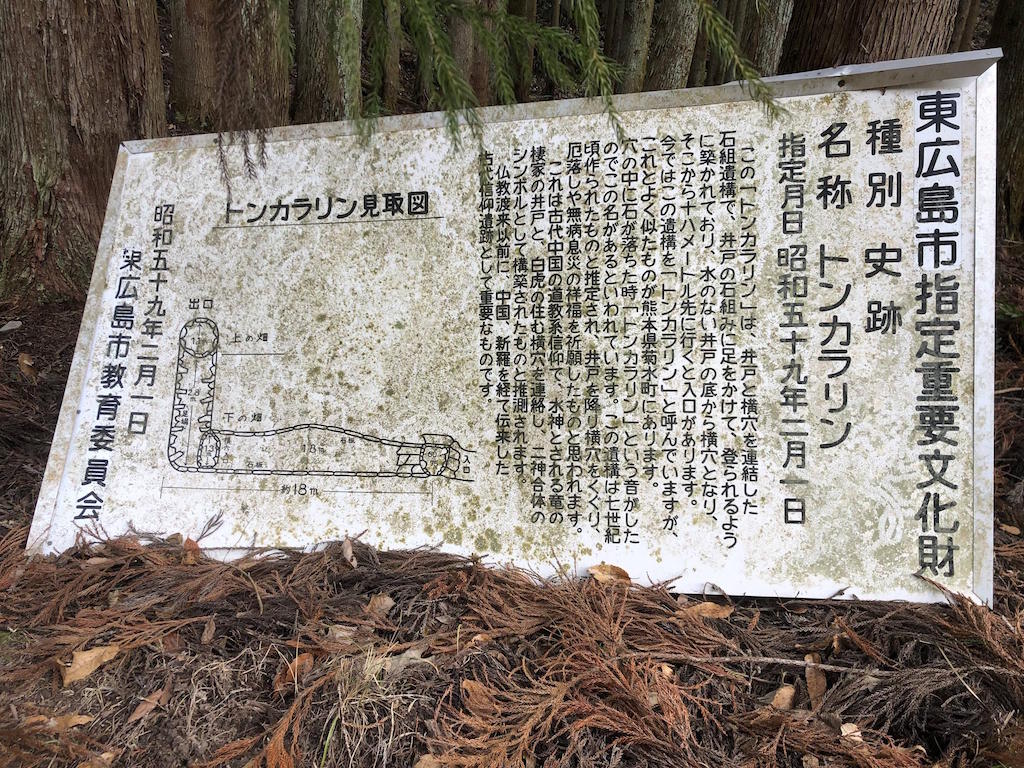 東広島市指定重要文化財
種別 史跡
名称 トンカラリン
指定月日 昭和五十九年二月一日
この「トンカラリン」は、井戸と横穴を連結した
石組遺構で、井戸の石組みに足をかけて、登られるよう
に築かれており、水のない井戸の底から横穴となり、
そこから十八メートル先に行くと入口があります。
今ではこの遺構を「トンカラリン」と呼んでいますが、
これとよく似たものが熊本県菊水町にあります。
穴の中に石が落ちた時「トンカラリン」という音がした
のでこの名があるといわれています。この遺構は七世紀
頃作られたものと推定され、井戸を降り横穴をくぐり、
厄落しや無病息災の祥福を祈願したものと思われます。
これは古代中国の道教系信仰で、水神とされる竜の
棲家の井戸と、白虎の住む横穴を連絡し、二神合体の
シンボルとして構築されたものと推測されます。
仏教渡来以前に、中国、新羅を経て伝来した
古代信仰遺跡として重要なものです。
トンカラリン見取図
出口
上の畑
下の畑
石板
石板
入口
約18m
昭和五十九年二月一日
東広島市教育委員会